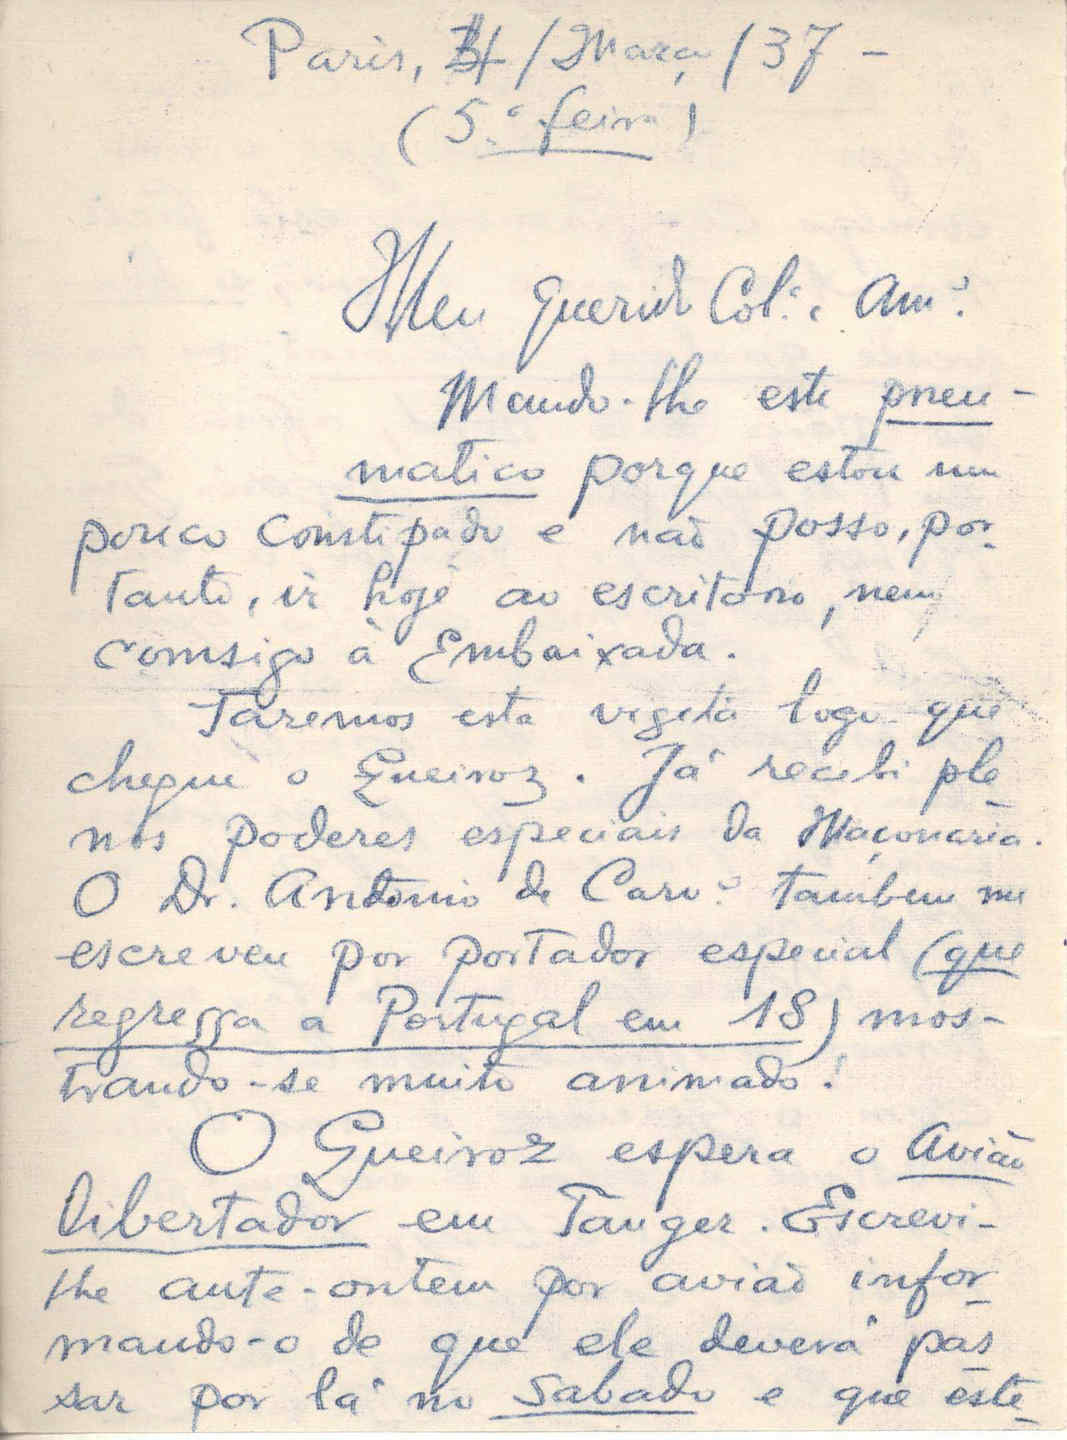 Paris, 4/Março/37 -
(5.ª feira)
Meu querido Col.ª e Am.º
Mando-lhe este pneu-
matico porque estou um
pouco constipado e não posso, por-
tanto, ir hoje ao escritorio, nem
comsigo à Embaixada.
Faremos esta vizita logo que
chegue o Queiroz. Já recebi ple-
nos poderes especiais da Maçonaria.
O Dr. Antonio de Carv.º tambem me
escreveu por portador especial (que
regressa a Portugal em 18) mos-
trando-se muito animado!
O Queiroz espera o Avião
Libertador em Tanger. Escrevi-
lhe ante-ontem por avião infor-
mando-o de que ele deverá pas-
sar por lá no Sabado e que este-